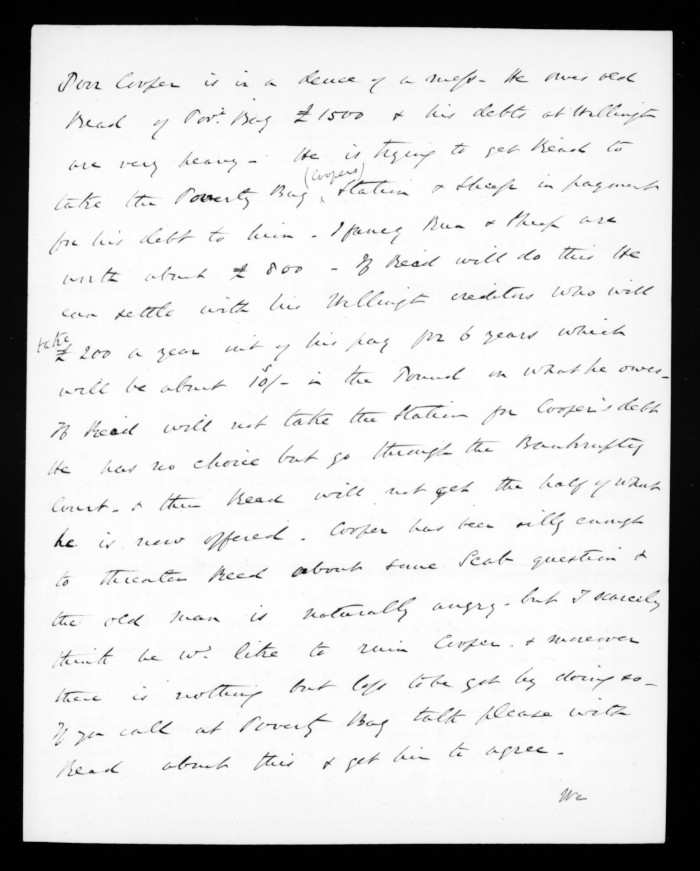 Poor Cooper is in a deuce of a mess - He owes old
Read of Pov.y Bay £1500 & his debts at Wellingt
are very heavy - He is trying to get Read to
take the Poverty Bay (Coopers) Station & Sheep in payment
for his debt to him - I fancy Run & Sheep are
worth about £800 - If Read will do this He
can settle with his Wellingt creditors who will
take £200 a year out of his pay for 6 years which
will be about 10/- in the Pound on what he owes -
If Read will not take the Station for Cooper's debt
He has no choice but go through the Bankruptcy
Court - & then Read will not get the half of what
he is now offered. Cooper has been silly enough
to threaten Read about some Scab question &
the old man is naturally angry - but I scarcely
think he w.d like to ruin Cooper - & moreover
there is nothing but loss to be got by doing so -
If you call at Poverty Bay talk please with
Read about this & get him to agree -
We